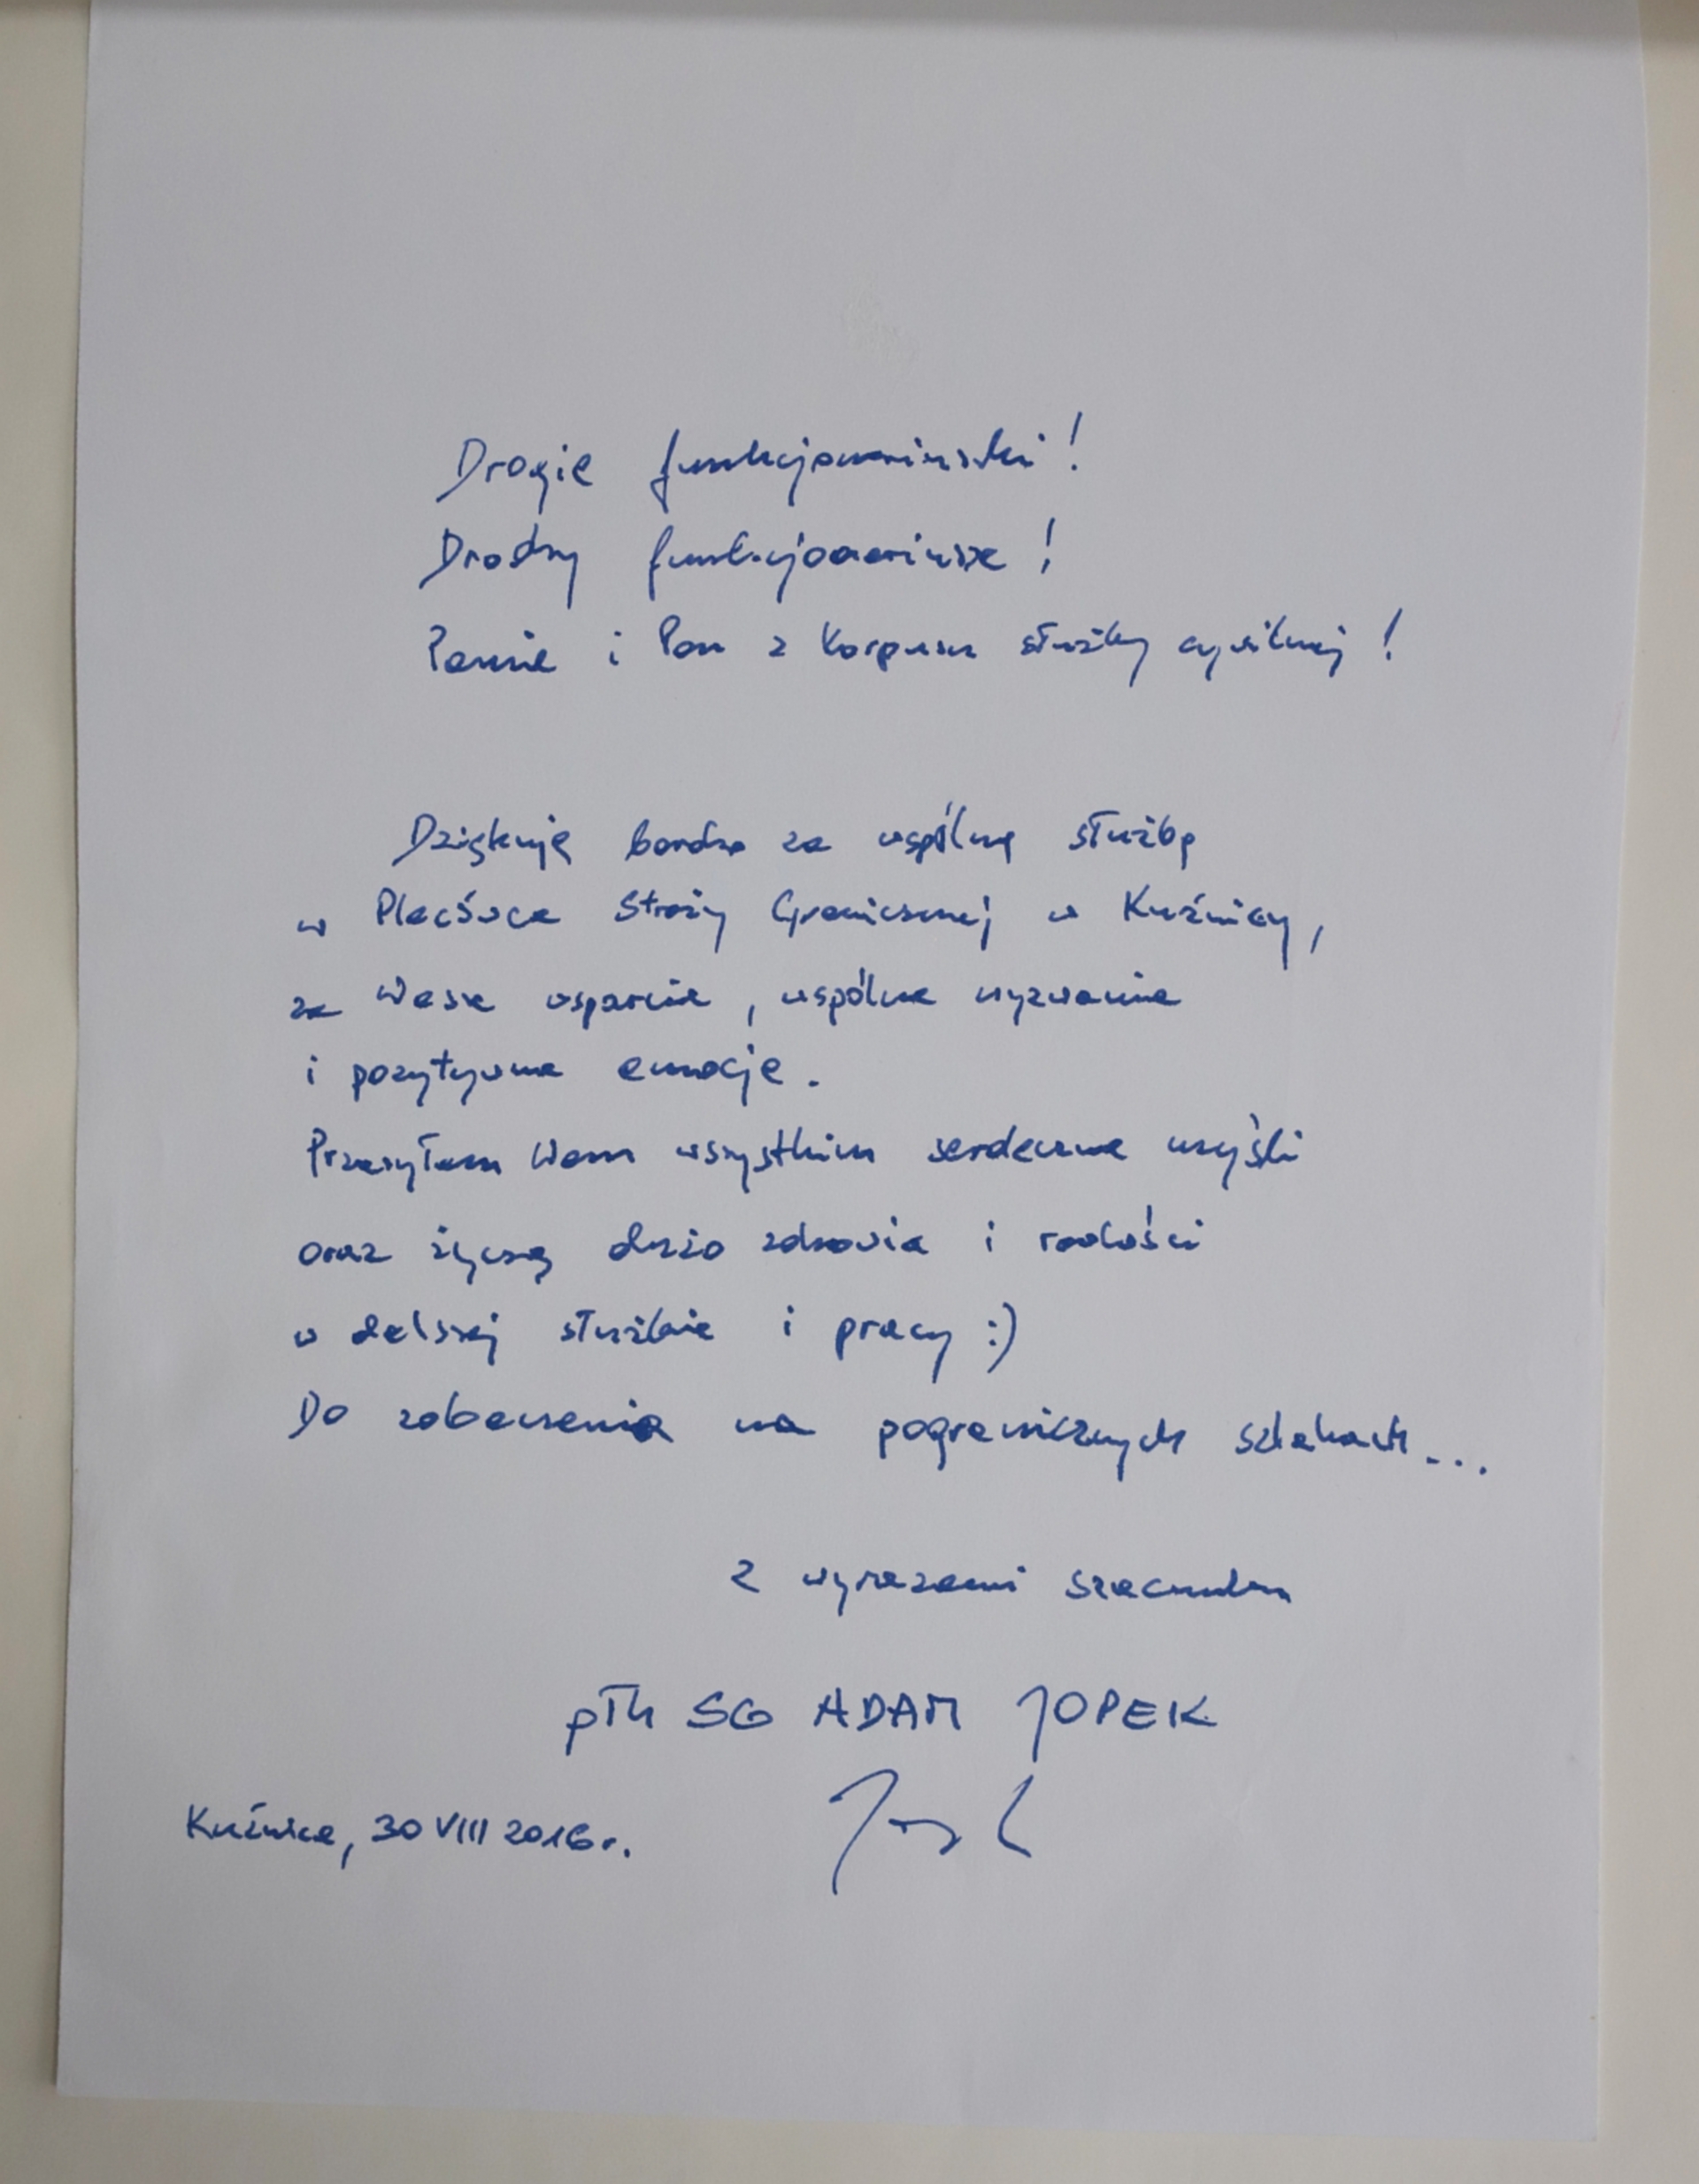 Drogie funkcjonariuszki!
Drodzy funkcjonariusze!
Panie i Pan z Korpusu służby cywilnej!
Dziękuję bardzo za wspólną służbę
w Placówce Straży Granicznej w Kuźnicy,
za Wasze wsparcie, wspólne wyzwania
i pozytywne emocje.
Przesyłam Wam wszystkim serdeczne myśli
oraz życzę dużo zdrowia i radości
w dalszej służbie i pracy :)
Do zobaczenia na pogranicznych szlakach...
Z wyrazami szacunku
płk SG ADAM JOPEK
Kuźnica, 30 VIII 2016 r.